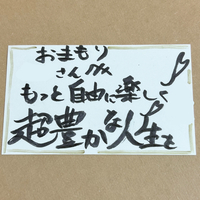 おまもり
さん
もっと自由に楽しく
超豊かな人生を